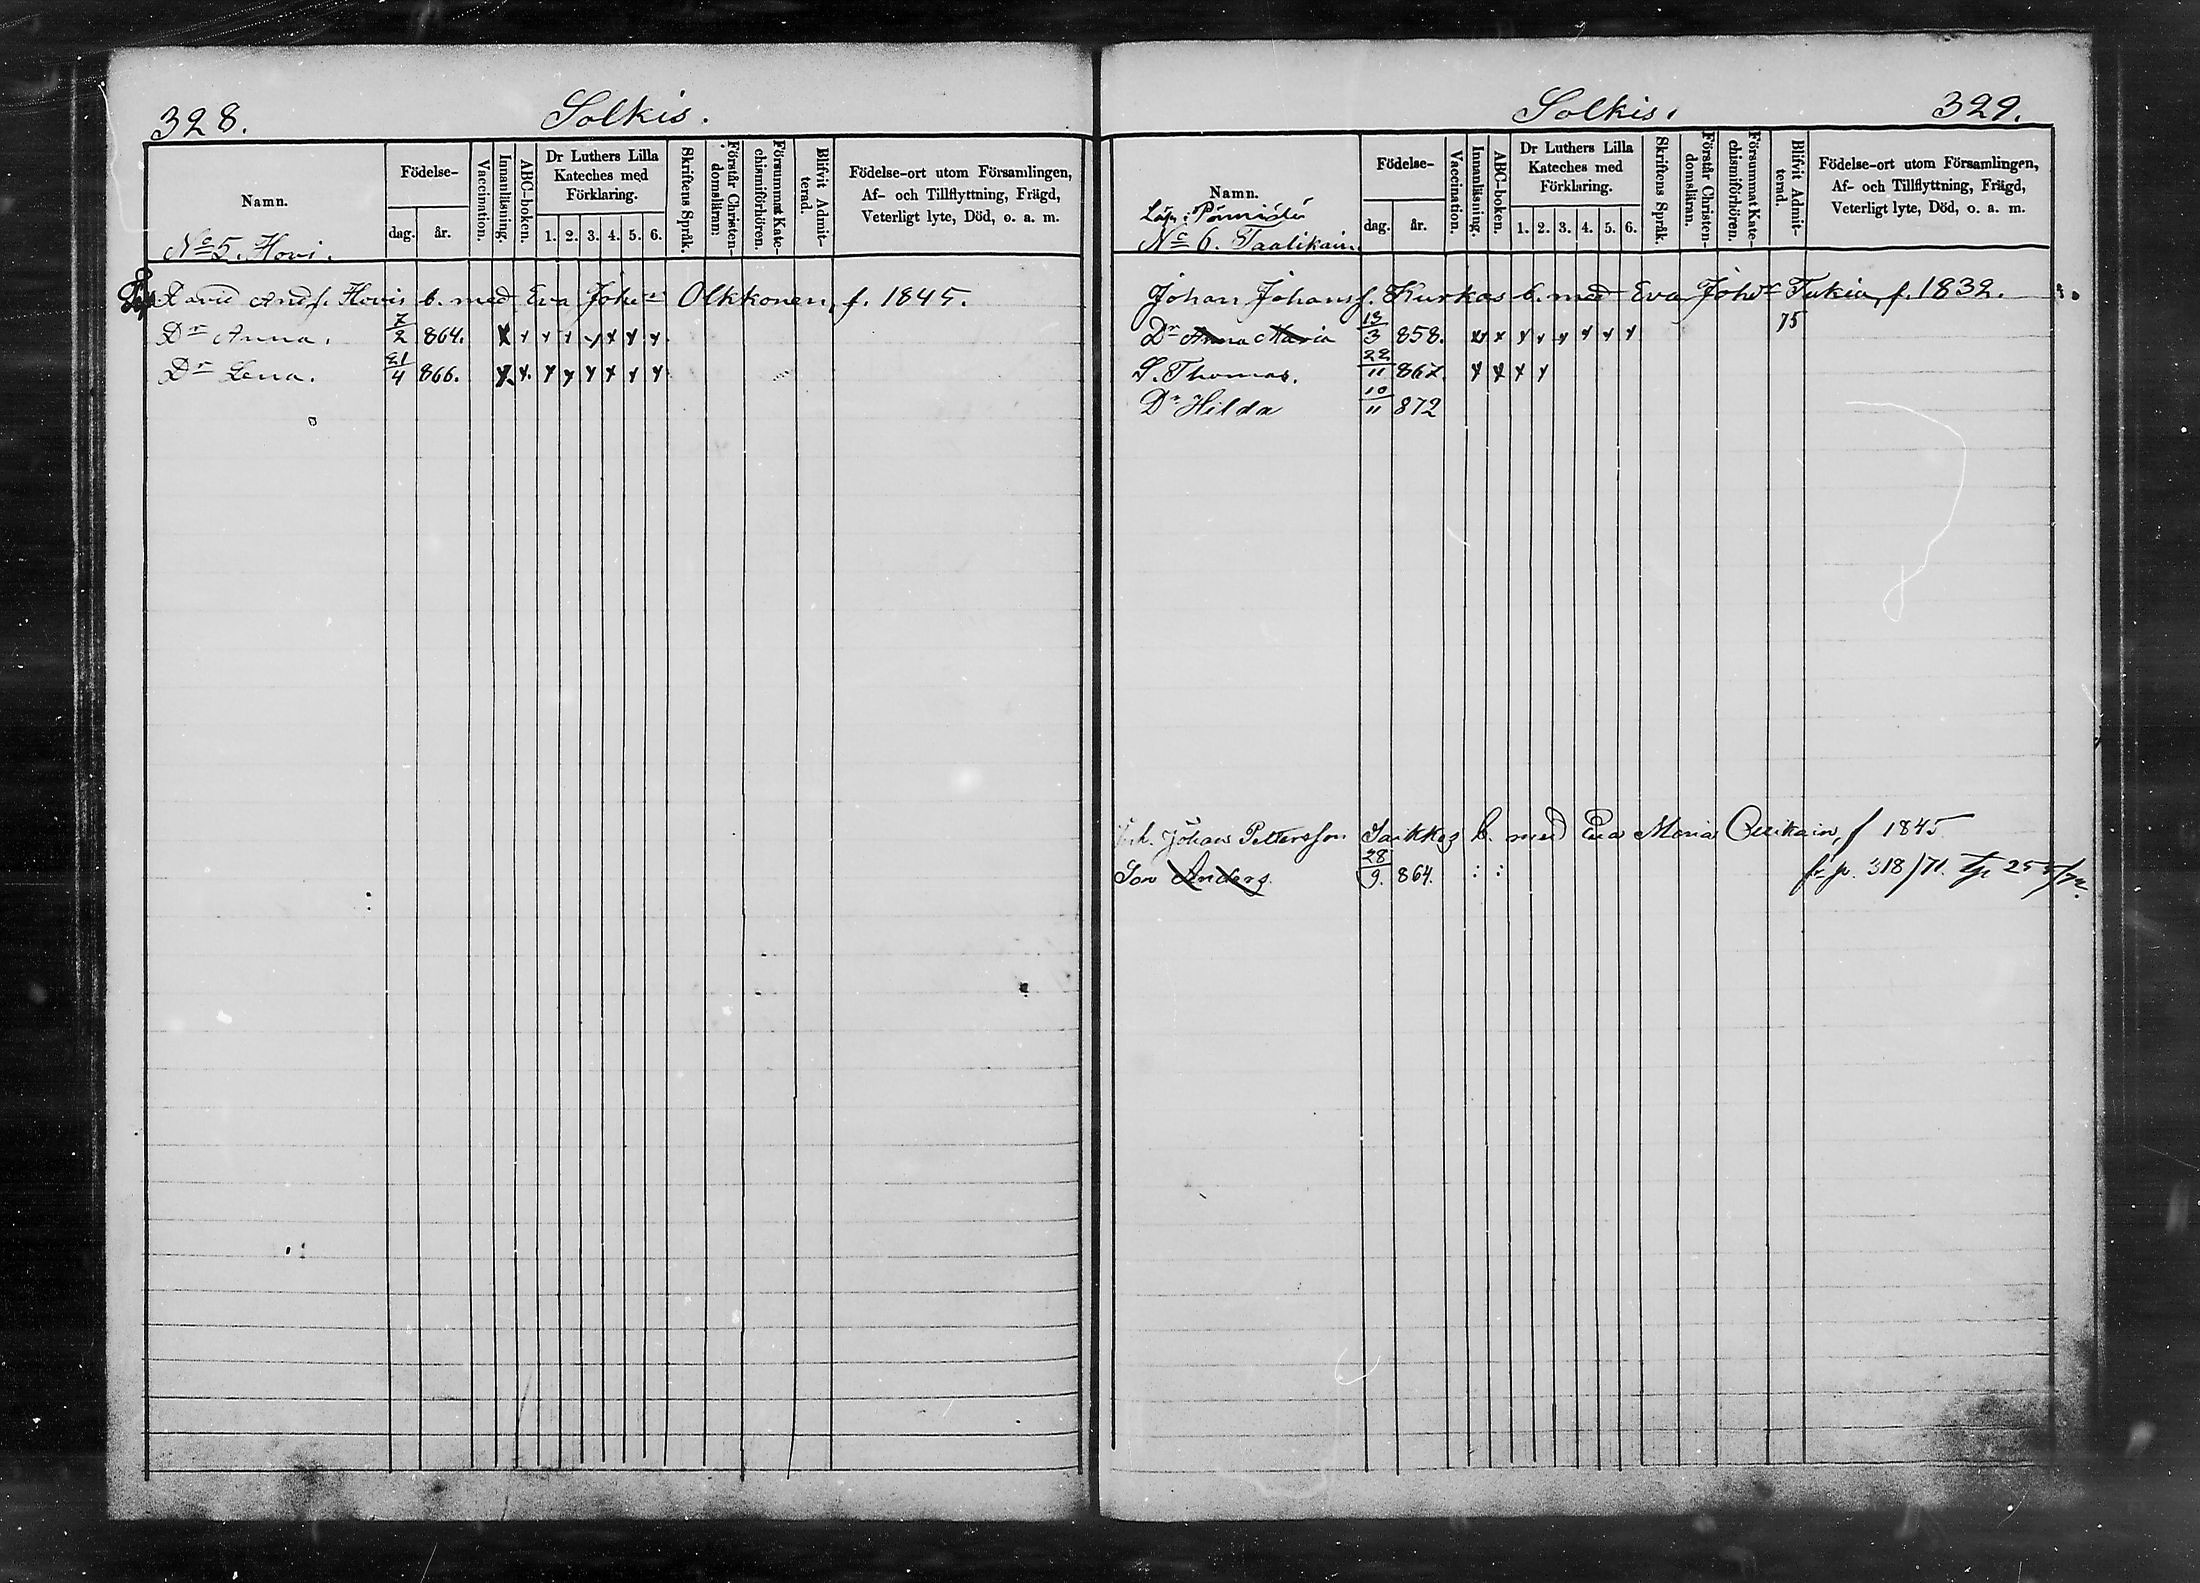 328.
Solkis.
Namn.
Födelse-
dag.
år.
Vaccination.
Innanläsning.
ABC-boken.
Dr Luthers Lilla
Kateches med
Förklaring.
1. 2. 3. 4. 5. 6.
Skriftens Språk.
Förstår Christen-
domsläran.
Försummat Kate-
chismiförhören.
Blifvit Admit-
terad.
Födelse-ort utom Församlingen,
Af- och Tillflyttning, Frägd,
Veterligt lyte, Död, o. a. m.
No 5. Hovi.
David And.f. Hovis b. med Eva Johsdr Olkkonen, f. 1845.
Dr Anna. 7/2 864. x x x x x x x x
Dr Lena. 21/4 866. x x x x x x x x
Solkis.
329.
Namn.
Födelse-
dag.
år.
Vaccination.
Innanläsning.
ABC-boken.
Dr Luthers Lilla
Kateches med
Förklaring.
1. 2. 3. 4. 5. 6.
Skriftens Språk.
Förstår Christen-
domsläran.
Försummat Kate-
chismiförhören.
Blifvit Admit-
terad.
Födelse-ort utom Församlingen,
Af- och Tillflyttning, Frägd,
Veterligt lyte, Död, o. a. m.
No 6. Taalikain
Johan Johansf. Kurkas b. med Eva Johdr Tukia, f. 1832.
Dr Anna Maria 13/3 858. x x x x x x x x 75
S. Thomas. 22/11 867. x x x x
Dr Hilda 10/11 872
Inh. Johan Pettersson Saikkos b. med Eva Maria f 1845
Son Anders 28/9. 864. : : fr p. 318/71.